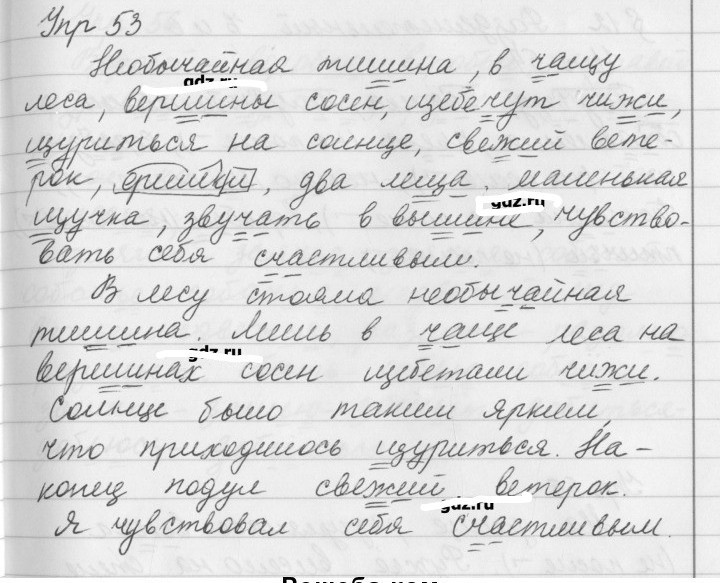 Упр 53
Необычайная тишина, в чащу
леса, вершины сосен, щебечут чижи,
gdz.ru
щуриться на солнце, свежий вете-
рок, два леща. маленькая
щучка, звучать в вышине, чувство-
gdz.ru
вать себя счастливым.
В лесу стояла необычайная
тишина. Лишь в чаще леса на
вершинах сосен щебетали чижи.
gdz.ru
Солнце было таким ярким,
что приходилось щуриться. На-
конец подул свежий ветерок.
gdz.ru
Я чувствовал себя счастливым.